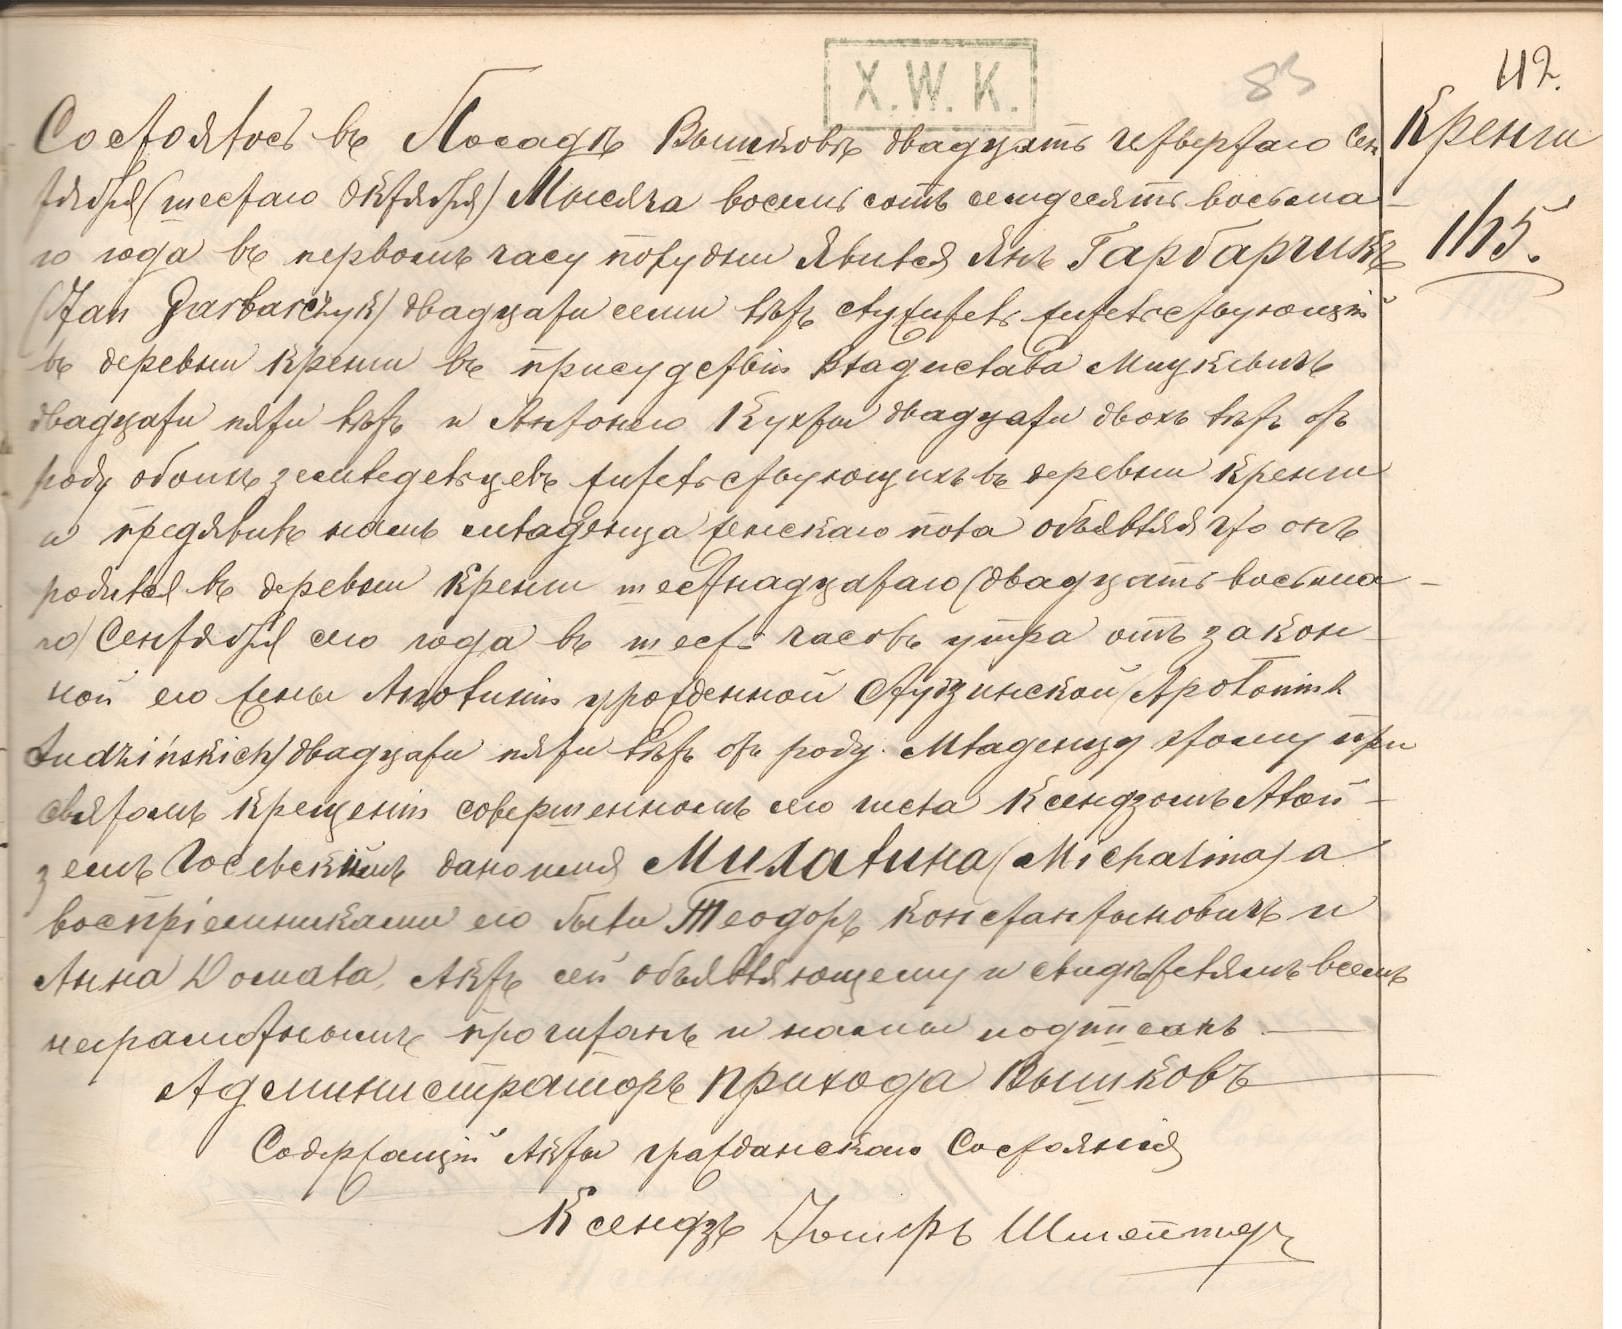 X.W.K.
83
42.
Кренги
1115.
Состоялось въ Посадѣ Вышковѣ двадцать четвертаго Сен
тября (шестаго Октября) Мысяча восемь сотъ семдесятъ восьма-
го года въ первомъ часу пополудни Явился Янъ Гарбарчикъ
(Jan Garbarczyk) двадцати семи лѣтъ служитель жительствующій
въ деревни Кренги въ присудствіи Владислава Мицкевичъ
двадцати пяти лѣтъ и Антонего Кухты двадцати двохъ лѣтъ отъ
роду обоихъ земледельцевъ жительствующихъ въ деревни Кренги
и предявилъ намъ младенца женскаго пола объявляя что онъ
родился въ деревни Кренги шестнадцатаго (двадцать восьма-
го) Сентября сего года въ шесть часовъ утра отъ закон
ной его жены Аполлоніи урожденной Студзинской (Apolonia z
Studzińskich) двадцати пяти лѣтъ отъ роду. Младенцу этому при
святомъ Крещеніи совершенномъ сего числа Ксендзомъ Алой-
земъ Госевскимъ дано имя Михалина (Michalina) а
воспріемниками его были Теодоръ Константыновичъ и
Анна Домала, Актъ сей объявляющему и свидѣтелямъ всемъ
неграмотнымъ прочитанъ и нами подписанъ.
Администраторъ прихода Вышковъ
Содержащій Акты гражданскаго Состоянія
Ксендзъ Іосифъ Шмейтеръ